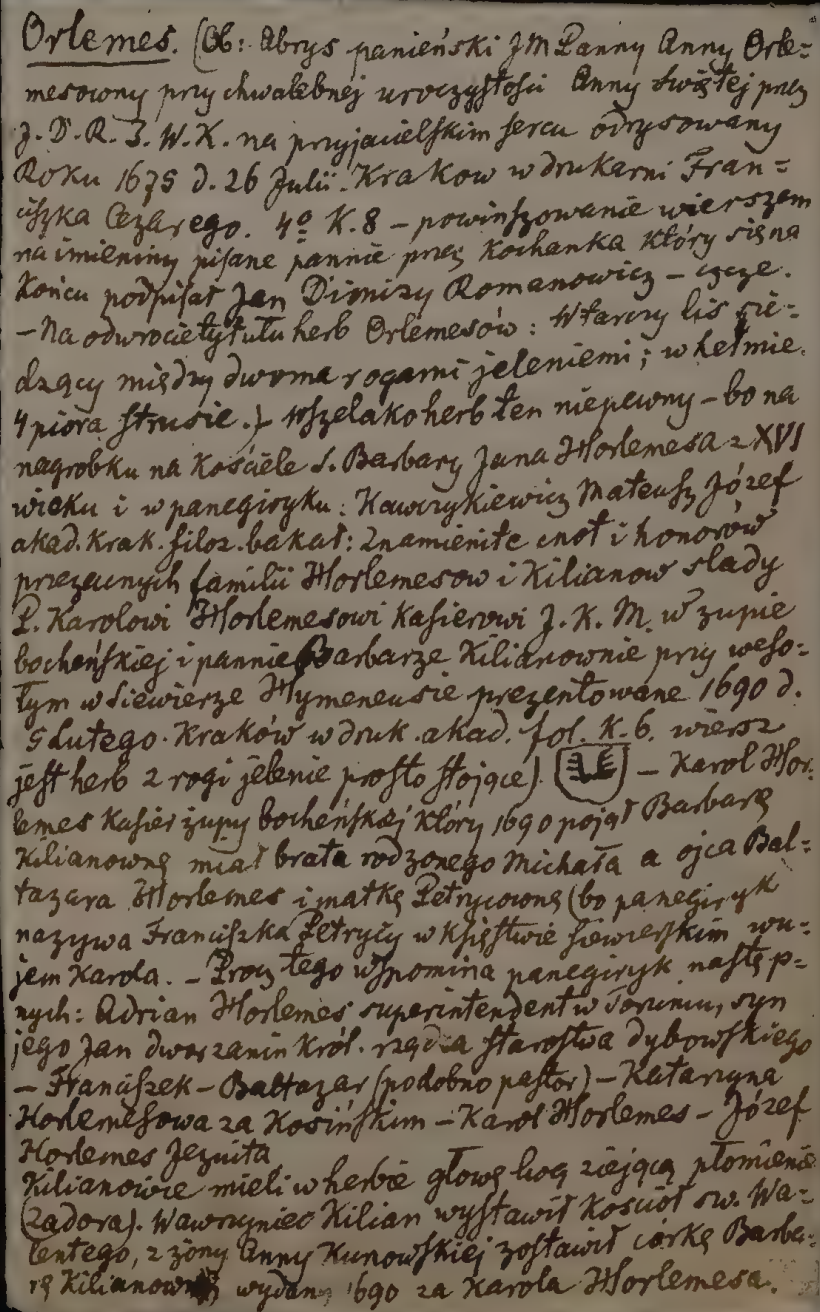 Orlemes. (Ob: Abrys panieński JM Panny Anny Orle=
mesowny przy chwalebnej uroczystości Anny świętej przez
J. D. R. Z. W. K. na przyjacielskim sercu odrysowany
Roku 1675 d. 26 Julii. Krakow w drukarni Fran=
ciszka Cezarego. 4º K. 8 – powinszowanie wierszem
na imieniny pisane pannie przez kochanka który się na
końcu podpisał Jan Dionizy Romanowicz –
– Na odwrocie tytułu herb Orlemesów: W tarczy lis sie=
dzący między dwoma rogami jeleniemi; w hełmie
4 pióra strusie.) – Wszelako herb ten niepewny – bo na
nagrobku na kościele S. Barbary Jana Horlemesa z XVI
wieku i w panegiryku: Kawczykiewicz Mateusz Józef
akad. krak. filoz. bakał: Znamienite cnot i honorów
przezacnych familii Horlemesow i Kilianow slady
P. Karolowi Horlemesowi Kasierowi J. K. M. w zupie
bocheńskiej i pannie Barbarze Kilianownie przy weso=
łym w Siewierze Hymeneusie prezentowane 1690 d.
5 Lutego. Kraków w druk. akad. fol. K. 6. wiersz
jest herb 2 rogi jelenie prosto stojące) – Karol Hor=
lemes Kasier żupy bocheńskiej który 1690 pojął Barbarę
Kilianownę miał brata rodzonego Michała a ojca Bal=
tazara Horlemes i matkę Petrycownę (bo panegiryk
nazywa Franciszka Petrycy w księstwie siewierskim wu=
jem Karola. – Procz tego wspomina panegiryk następ=
nych: Adrian Horlemes superintendent w Toruniu, syn
jego Jan dworzanin król. rządca starostwa dybowskiego
– Franciszek – Baltazar (podobno pastor) – Katarzyna
Horlemesowa za Kosińskim – Karol Horlemes – Józef
Horlemes Jezuita
Kilianowie mieli w herbie głowę lwą ziejącą płomienie
(Zadora). Wawrzyniec Kilian wystawił kościół św. Wa=
lentego, z żony Anny Kunowskiej zostawił córkę Barba=
rę Kilianownę wydaną 1690 za Karola Horlemesa.